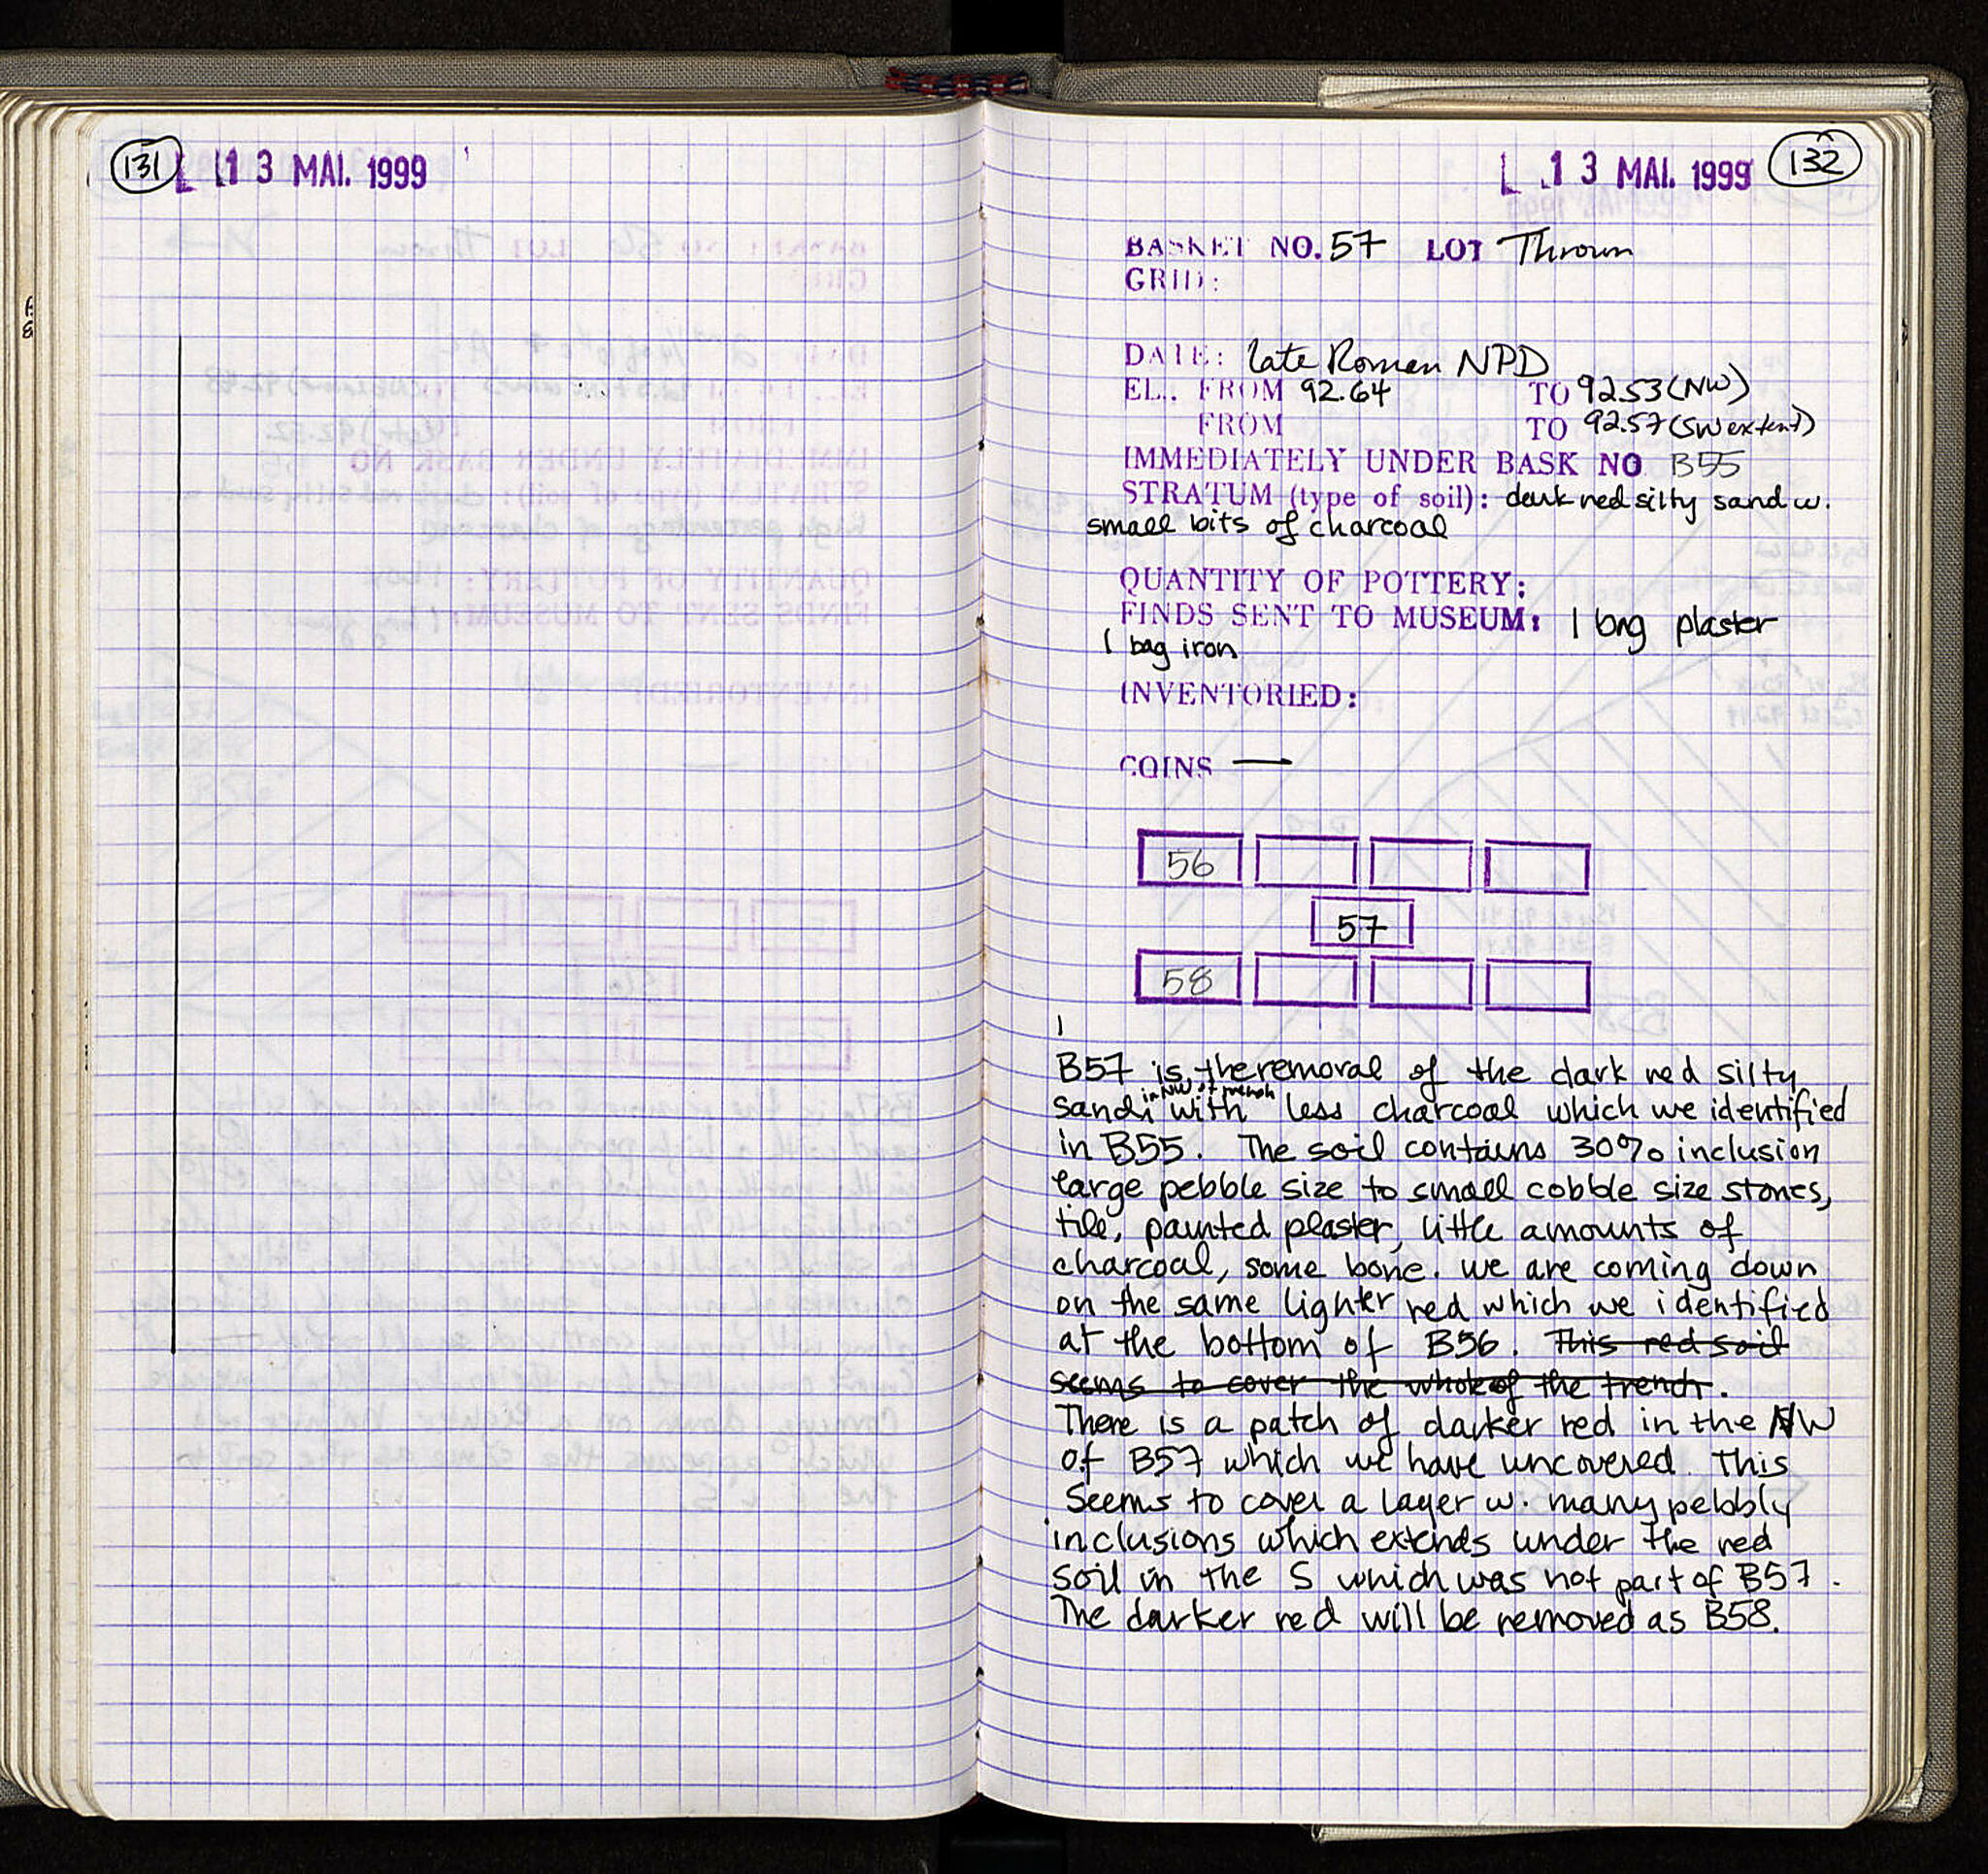 131
13 MAI. 1999
13 MAI. 1999
132
BASKET NO. 57 LOT Thrown
GRID:
DATE: late Roman NPD
EL.. FROM 92.64 TO 92.53 (NW)
FROM TO 92.57 (SW extent)
IMMEDIATELY UNDER BASK NO B55
STRATUM (type of soil): dark red silty sand w.
small bits of charcoal
QUANTITY OF POTTERY:
FINDS SENT TO MUSEUM: 1 bag plaster
1 bag iron
INVENTORIED:
COINS —
56
57
58
B57 is the removal of the dark red silty
in NW of trench
sand with less charcoal which we identified
in B55. The soil contains 30% inclusion
large pebble size to small cobble size stones,
tile, painted plaster, little amounts of
charcoal, some bone. We are coming down
on the same lighter red which we identified
at the bottom of B56. This red soil
seems to cover the whole of the trench.
There is a patch of darker red in the NW
of B57 which we have uncovered. This
seems to cover a layer w. many pebbly
inclusions which extends under the red
soil in the S which was not part of B57.
The darker red will be removed as B58.